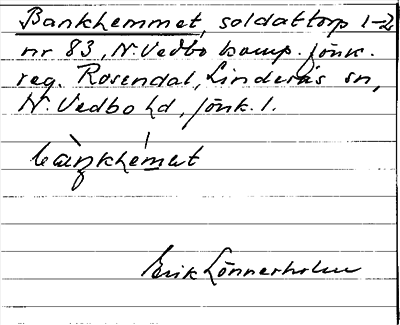 Bankhemmet, soldattorp 1-2
nr 83, N. Vedbo komp. jönk.
reg. Rosendal, Linderås sn,
N. Vedbo hd, jönk. l.
Erik Lönnerholm